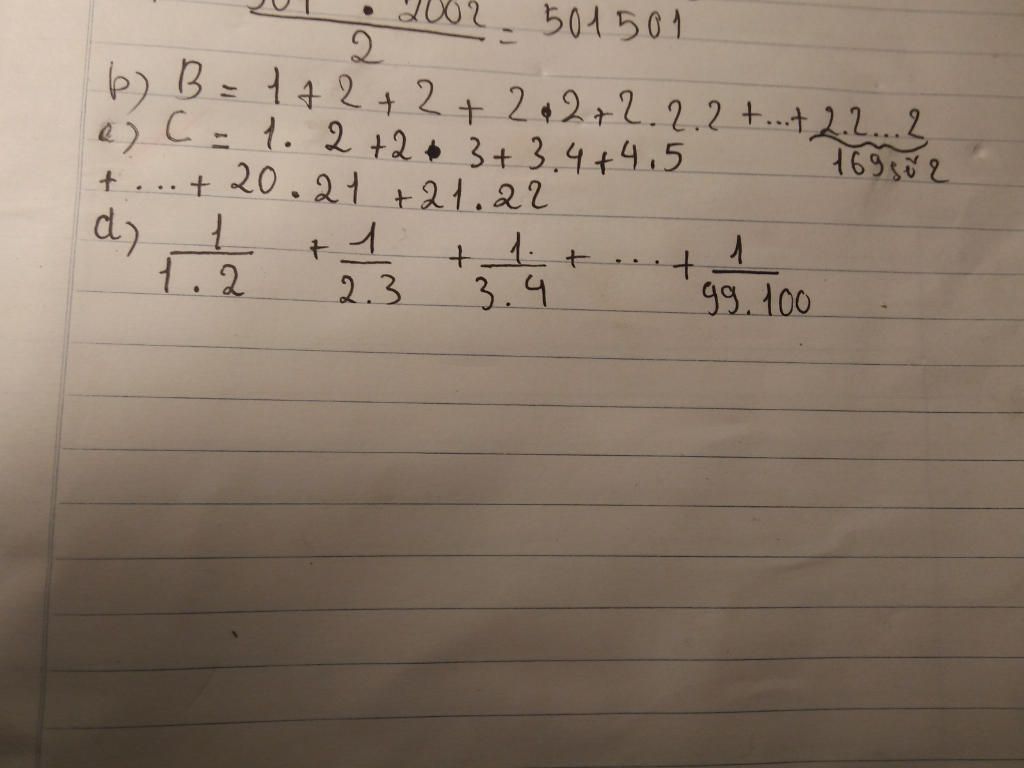 501 . 2002 / 2 = 501501
b) B = 1 + 2 + 2 + 2 . 2 + 2 . 2 . 2 + ... + 2.2...2
169 số 2
c) C = 1 . 2 + 2 . 3 + 3 . 4 + 4 . 5
+ ... + 20 . 21 + 21 . 22
d) 1 / 1 . 2 + 1 / 2 . 3 + 1 / 3 . 4 + ... + 1 / 99 . 100